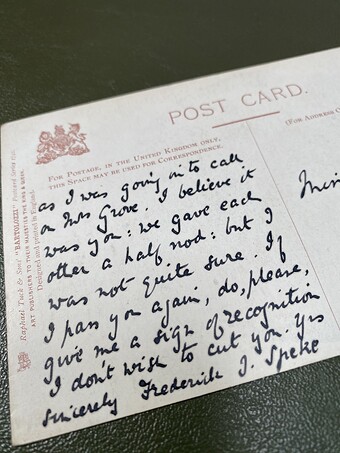 POST CARD.
FOR POSTAGE, IN THE UNITED KINGDOM ONLY,
THIS SPACE MAY BE USED FOR CORRESPONDENCE.
(FOR ADDRESS
as I was going in to call
on Mrs Grove. I believe it
was you: we gave each
other a half nod: but I
was not quite sure. If
I pass you again, do, please,
give me a sign of recognition
I don't wish to cut you. Yrs
sincerely Frederick J. Speke
Raphael Tuck & Sons' "BARTOLOZZI" Postcard Series
ART PUBLISHERS TO THEIR MAJESTIES THE KING & QUEEN.
Designed and printed in England.